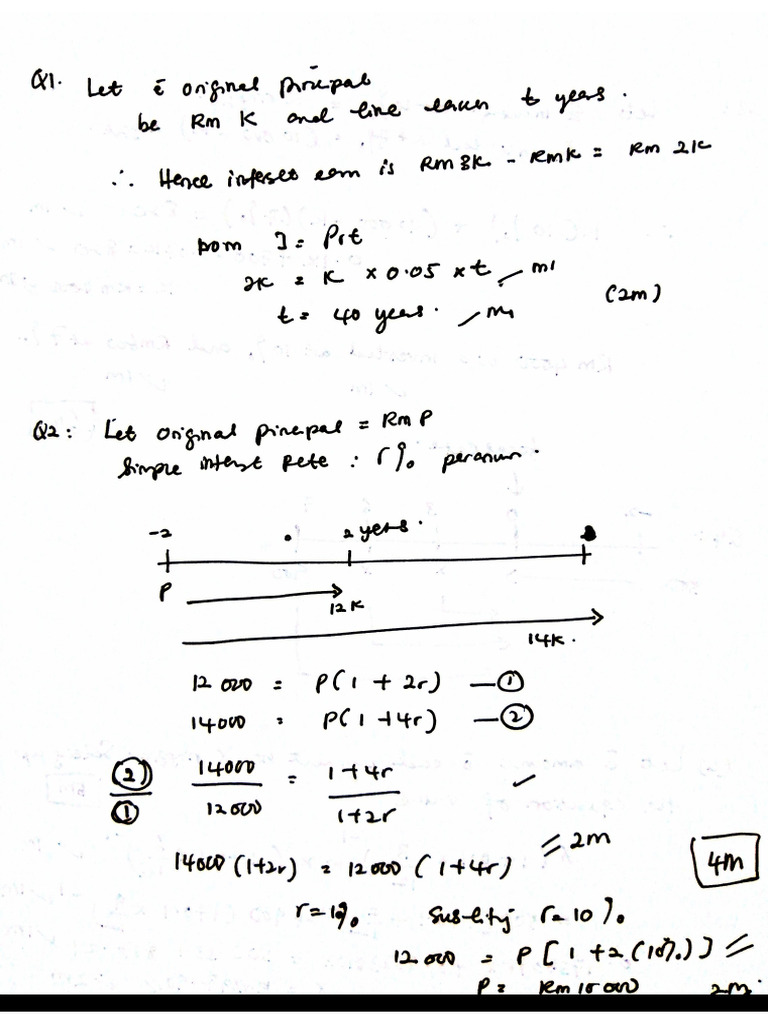 Q1. Let ē original principal
be Rm K and time taken t years.
∴ Hence interest earn is Rm 3K - RmK = Rm 2K
from I = Prt
2K = K × 0.05 × t m1
t = 40 years. m1 (2m)
Q2: Let original principal = Rm P
Simple interest rate : r% per annum.
-2 2 years.
P 12K
14K.
12 000 = P(1 + 2r) — ①
14000 = P(1 + 4r) — ②
② / ① 14000 / 12000 = 1+4r / 1+2r ✓
14000 (1+2r) = 12000 (1+4r) 2m 4m
r = 10%. r = 10%.
12 000 = P[1 + 2(10%)]
P = Rm 10 000 2m